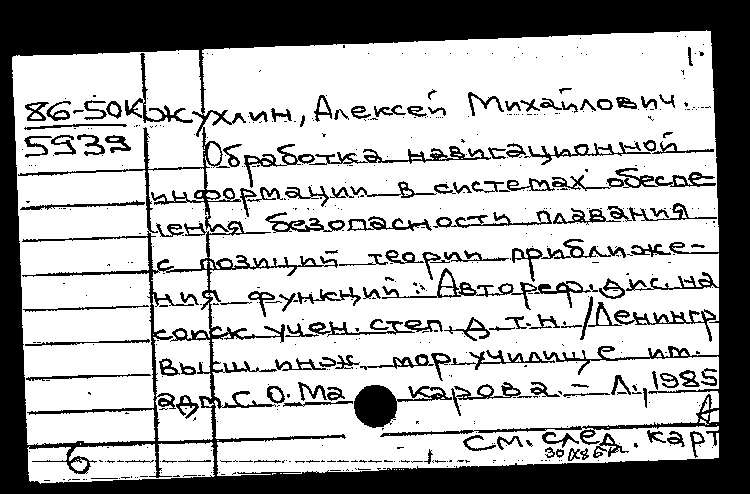 1.
86-50К Жухлин, Алексей Михайлович.
5939 Обработка навигационной
информации в системах обеспе-
чения безопасности плавания
с позиций теории приближе-
ния функций: Автореф. дис. на
соиск. учен. степ. д. т. н. / Ленингр
высш. инж. мор. училище им.
адм. С. О. Макарова. – Л., 1985
А
См. след. карт
6